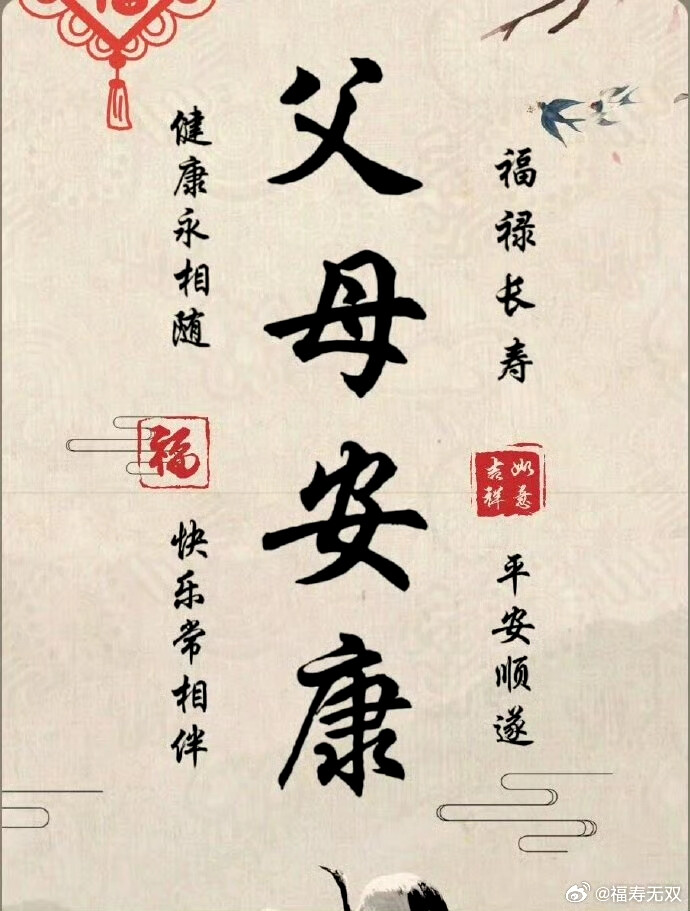 福
父母安康
福禄长寿
平安顺遂
健康永相随
快乐常相伴
如意
吉祥
福
@福寿无双